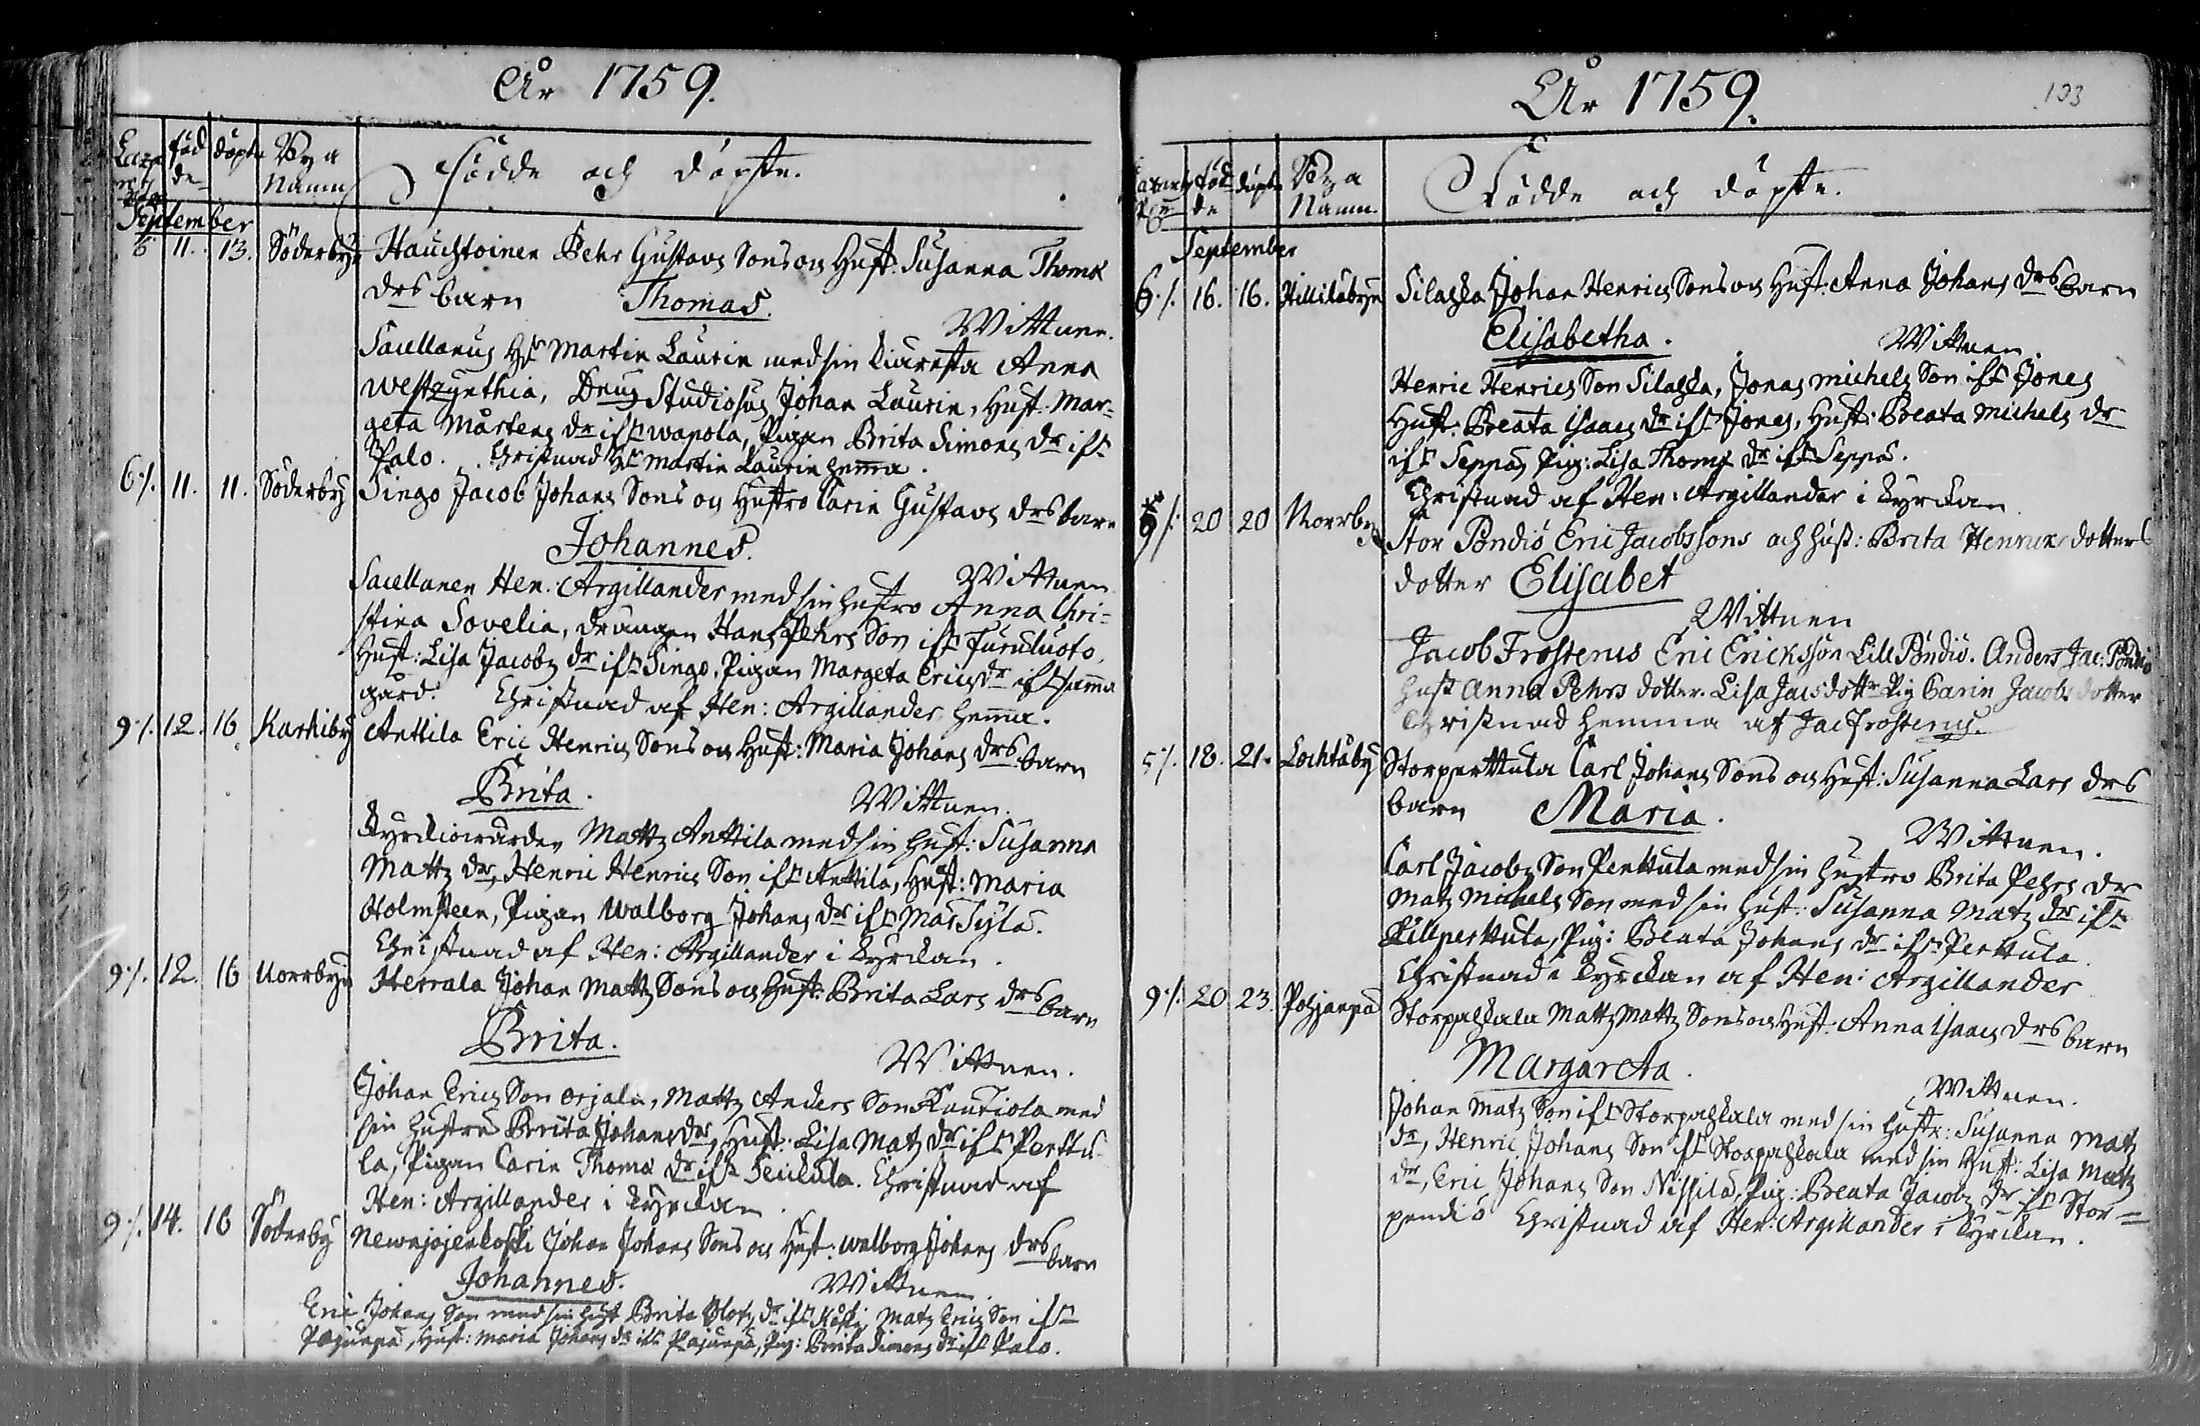 År 1759.
föd
de
döpte
Bya
Namn
Födde och döpte.
September
6 11. 13. Söderbyn Hauchtoinen Pehr Gustavs Sons och Hust. Susanna Thomæ
drs barn Thomas.
Wittnen.
Sacellanus Hr Martin Laurin med sin kiäresta Anna
Westzynthia, Studiosus Johan Laurin, Hust. Mar-
geta Mårtens dr ifr wapola, Pigan Brita Simons dr ifr
Palo. Christnad Hr Martin Laurin hemma.
6/. 11. 11. Söderby Singo Jacob Johans Sons och Hustro Carin Gustavs drs barn
Johannes.
Wittnen
Sacellanen Hen: Argillander med sin hustro Anna Chri-
stina Sovelia, drängen Hans Pehrs Son ifr Furuluoto,
Hust: Lisa Jacobs dr ifr Singo, Pigan Margeta Erics dr ifr samma
gård. Christnad af Hen: Argillander hemma.
9/. 12. 16 Karhiby Anttila Eric Henrics Sons och Hust: Maria Johans drs barn
Brita.
Wittnen.
Kyrckiowärden Mattz Anttila med sin hust: Susanna
Mattz dr, Henric Henrics Son ifr Anttila, Hust: Maria
Holmsteen, Pigan Walborg Johans dr ifr MasTyla.
Christnad af Hen: Argillander i Kyrckan.
9/. 12. 16 Norrbyn Herrala Johan Mattz Sons och Hust: Brita Lars drs barn
Brita.
Wittnen.
Johan Erics Son Orjala, Mattz Anders Son Kautiola med
sin hustru Brita Johans dr, Hust: Lisa Matz dr ifr Perttu-
la, Pigan Carin Thomæ dr ifr Seickula. Christnad af
Hen: Argillander i Kyrckan.
9/. 14. 16 Söderby Newajojenkoski Johan Johans Sons och Hust: walborg Johans drs barn
Johannes.
Wittnen.
Eric Johans Son med sin hust Brita Olofs dr ifr Koski, Matz Erics Son ifr
Pajunpä, Hust: Maria Johans dr ifr Pajunpä, Pig: Brita Simons dr ifr Palo.
År 1759.
103
föd
de
döpte
Bya
Namn
Födde och döpte.
September
6/. 16. 16. Hillilabyn Silaska Johan Henrics Sons och Hust. Anna Johans drs barn
Elisabetha.
Wittnen.
Henric Henrics Son Silaska, Jonas Michels Son ifr Jones
Hust: Breata Isaacs dr ifr Jones, Hust: Beata Michels dr
ifr Seppä, Pig: Lisa Thomæ dr ifr Seppä.
Christnad af Hen: Argillander i Kyrckan
9/. 20 20 Norrby Stor Pöndiö Eric Jacobssons och hust: Brita Henrics dotters
dotter Elisabet
Wittnen
Jacob Frosterus Eric Ericksson Lill Pöndiö. Anders Jac: Pöndiö
hust Anna Pehrs dotter. Lisa Jacs dottr Pig Carin Jacobs dotter
Christnad hemma af Jac Frosterus.
5/. 18. 21. Lochtåby Storperttula Carl Johans Sons och Hust: Susanna Lars drs
barn Maria.
Wittnen.
Carl Jacobs Son Perttula med sin hustro Brita Pehrs dr
Matz Michels Son med sin hust: Susanna Matz dr ifr
Lillperttula, Pig: Beata Johans dr ifr Perttula.
Christnad i Kyrckan af Hen: Argillander
9/. 20 23. Pohjanpä Storpaskala Mattz Mattz Sons och Hust: Anna Isaacs drs barn
Margareta.
Wittnen.
Johan Matz Son ifr Storpaskala med sin hustr: Susanna Matz
dr, Henric Johans Son ifr Storpaskala med sin hust: Lisa Matz
dr, Eric Johans Son Nissila, Pig: Breata Jacobs dr ifr Stor-
pendiö Christnad af Hen: Argillander i Kyrckan.